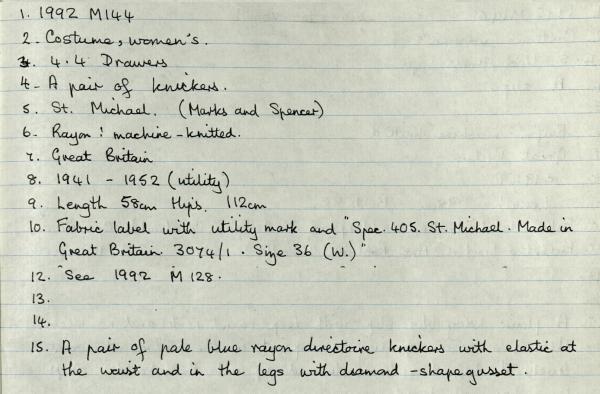 1. 1992 M144
2. Costume, women's.
3. 4.4 Drawers
4. A pair of knickers.
5. St. Michael. (Marks and Spencer)
6. Rayon : machine-knitted.
7. Great Britain
8. 1941 - 1952 (utility)
9. Length 58cm Hips. 112cm
10. Fabric label with utility mark and "Spec. 405. St. Michael. Made in
Great Britain. 3074/1. Size 36 (W.)"
12. See 1992 M 128.
13.
14.
15. A pair of pale blue rayon directoire knickers with elastic at
the waist and in the legs with diamond-shape gusset.